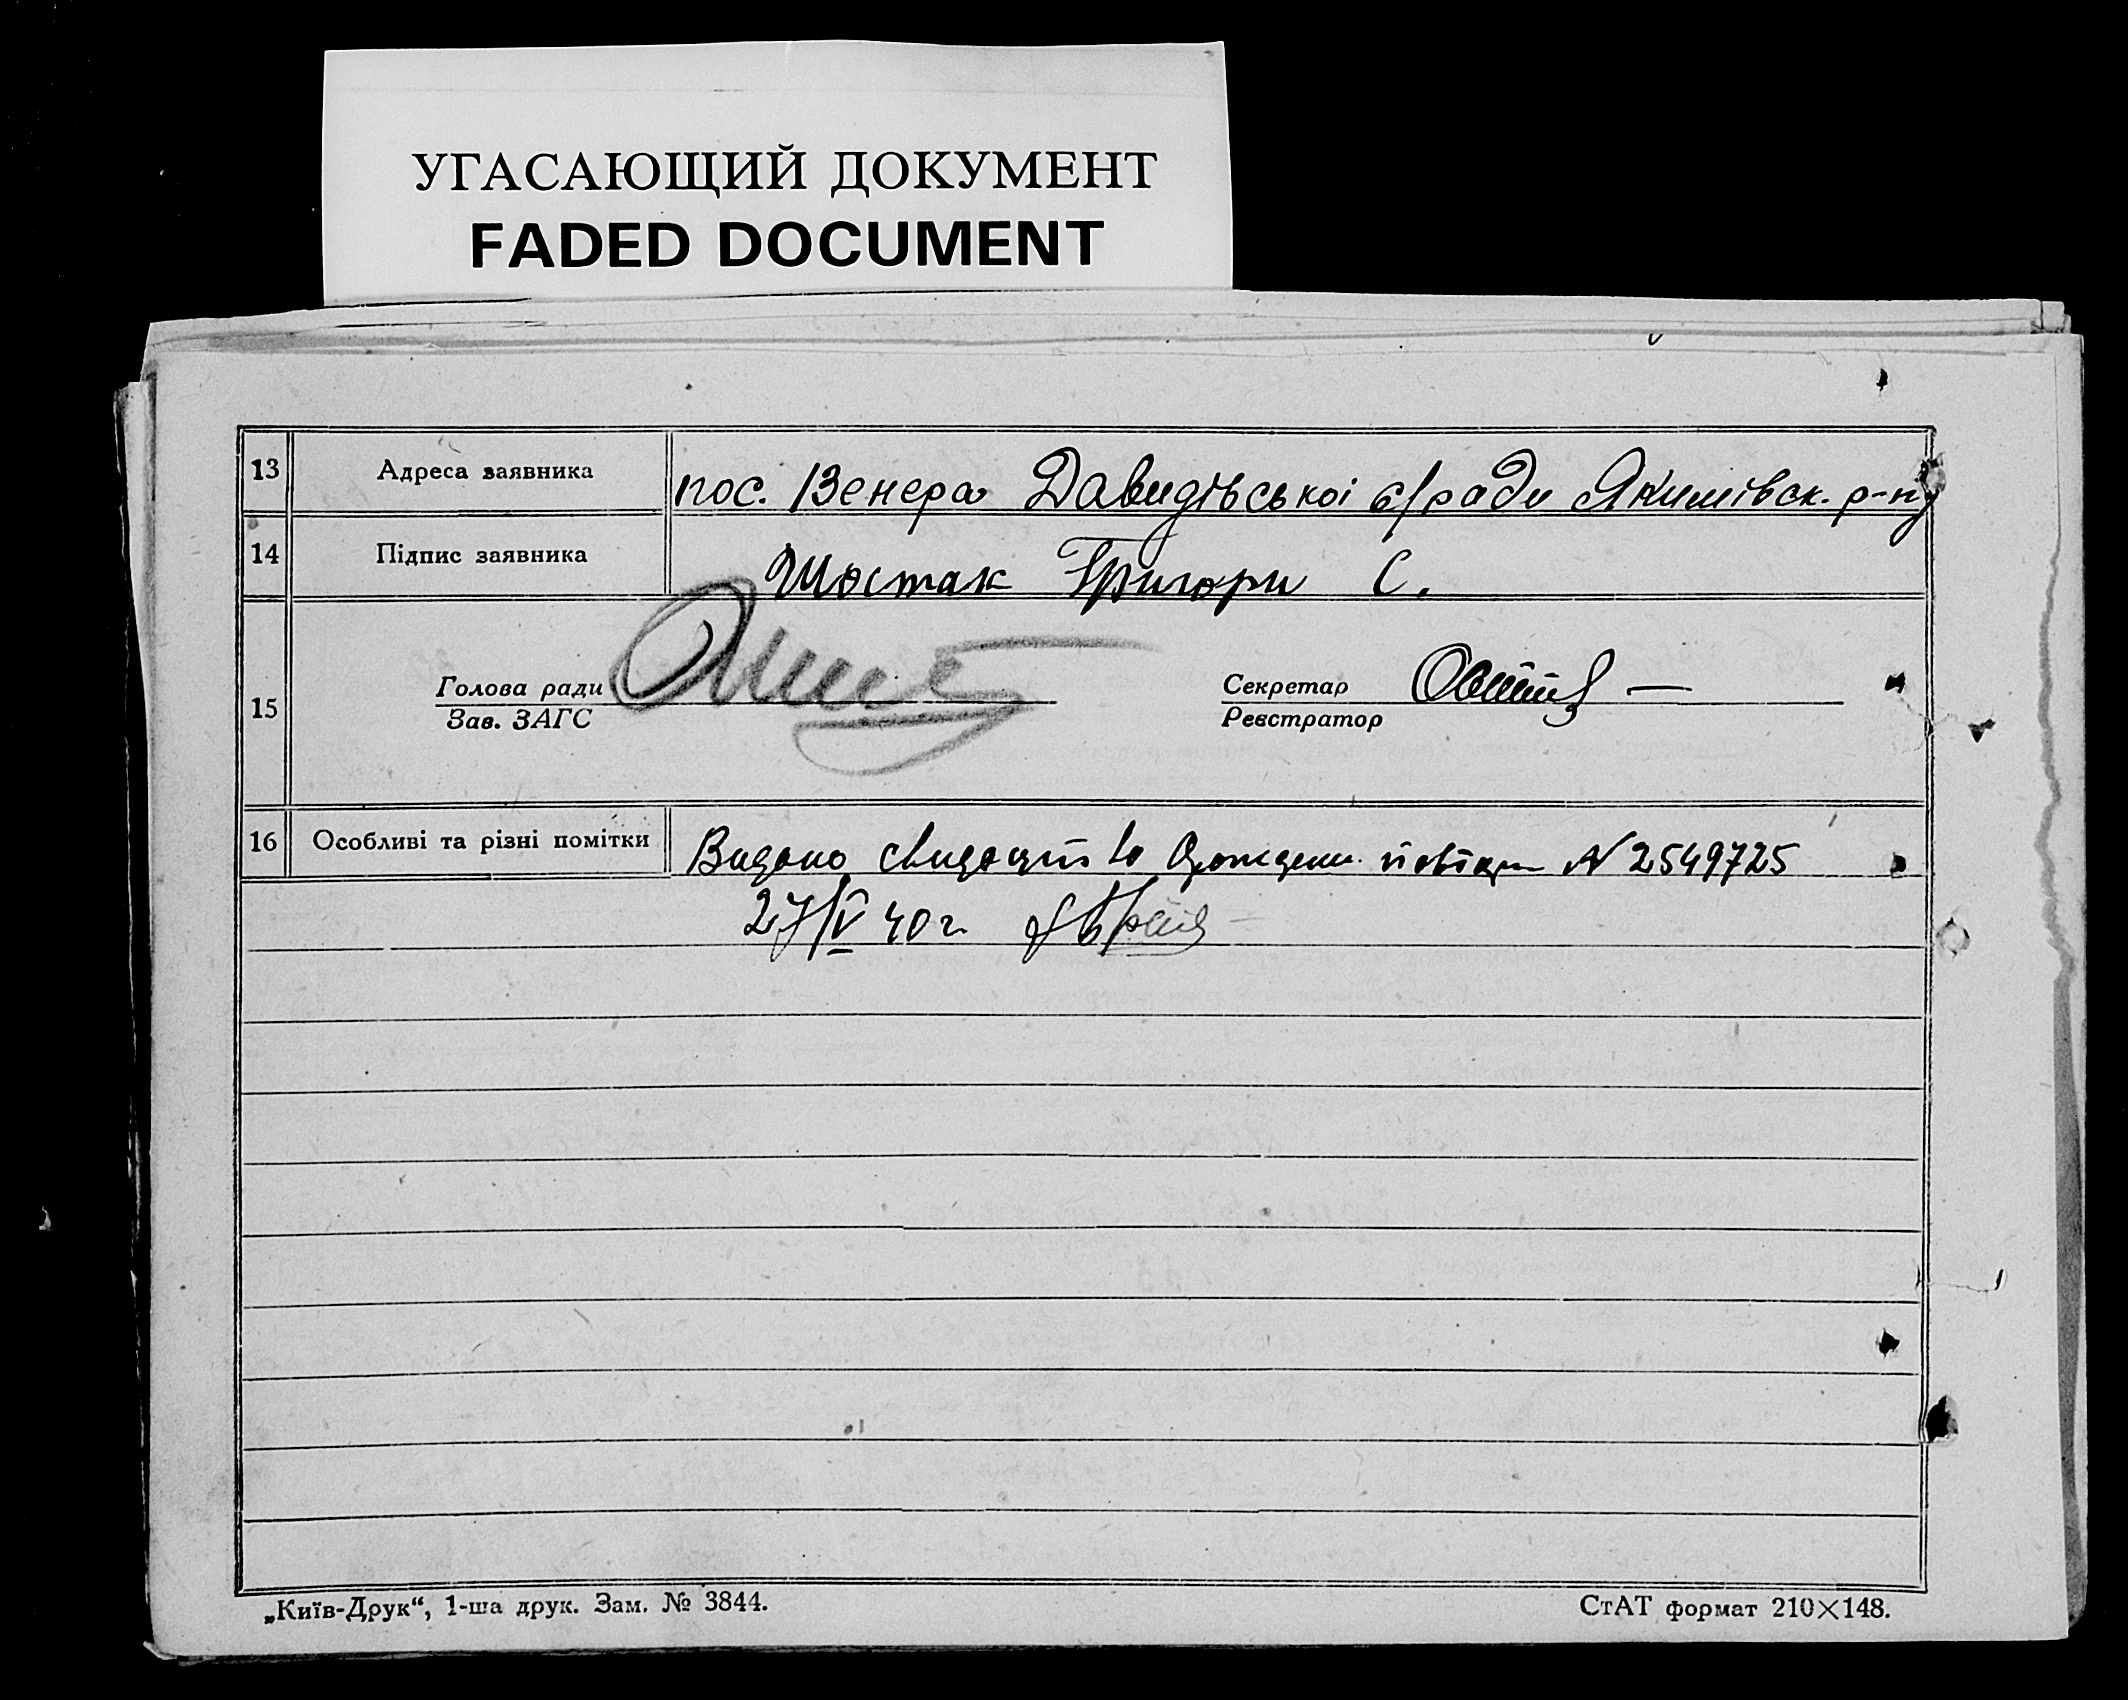 УГАСАЮЩИЙ ДОКУМЕНТ
FADED DOCUMENT
13 Адреса заявника пос. Венера Давидівської с/ради Якимівск. р-ну
14 Підпис заявника Шостак Григори С.
15 Голова ради Секретар
Зав. ЗАГС Реєстратор
16 Особливі та різні помітки Видано свидоцтво N 2549725
27/V 40 г.
„Київ-Друк“, 1-ша друк. Зам. № 3844. СтАТ формат 210×148.